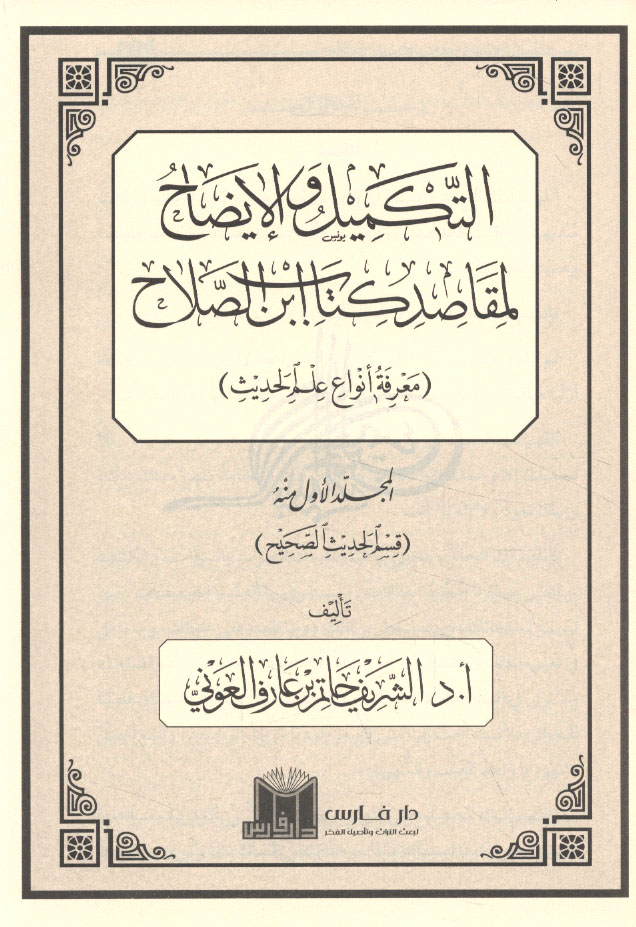 التَّكْمِيلُ وَالإِيضَاحُ
يونس
لِمَقَاصِدِ كِتَابِ ابْنِ الصَّلَاح
(مَعْرِفَةُ أَنْوَاعِ عِلْمِ الحَدِيْثِ)
المجلّد الأول منْهُ
(قِسْمُ الحَدِيْثِ الصَّحِيْحِ)
تَأْلِيْف
أ.د الشَّرِيْف حَاتِم بْن عَارِف العَوْنِيّ
دار فارس
لبعث التراث وتأصيل الفكر
دار فارس